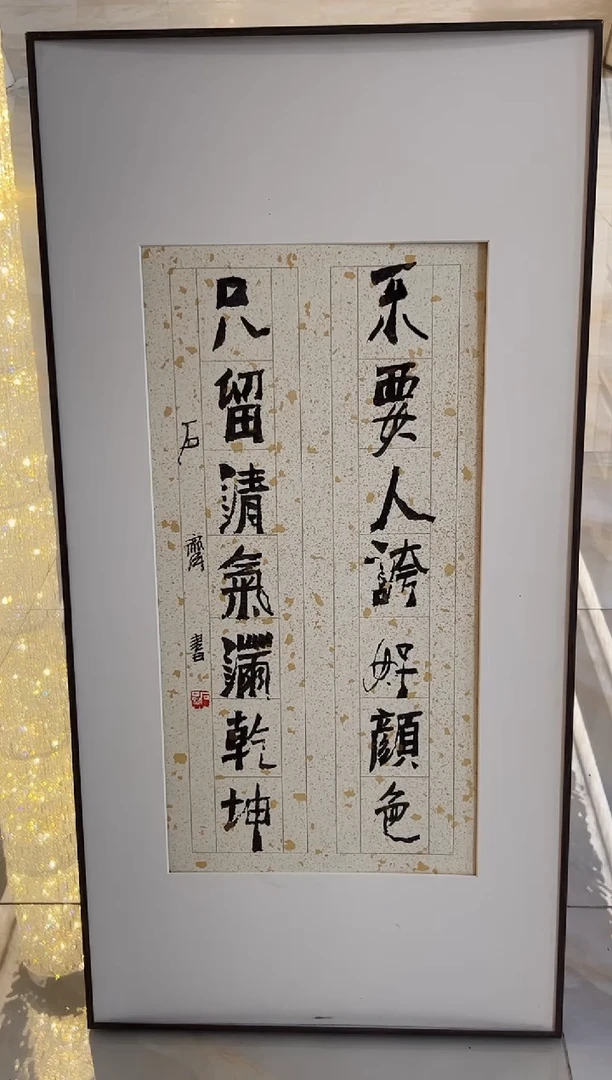 不要人誇好顔色
只留清氣滿乾坤
石齋書